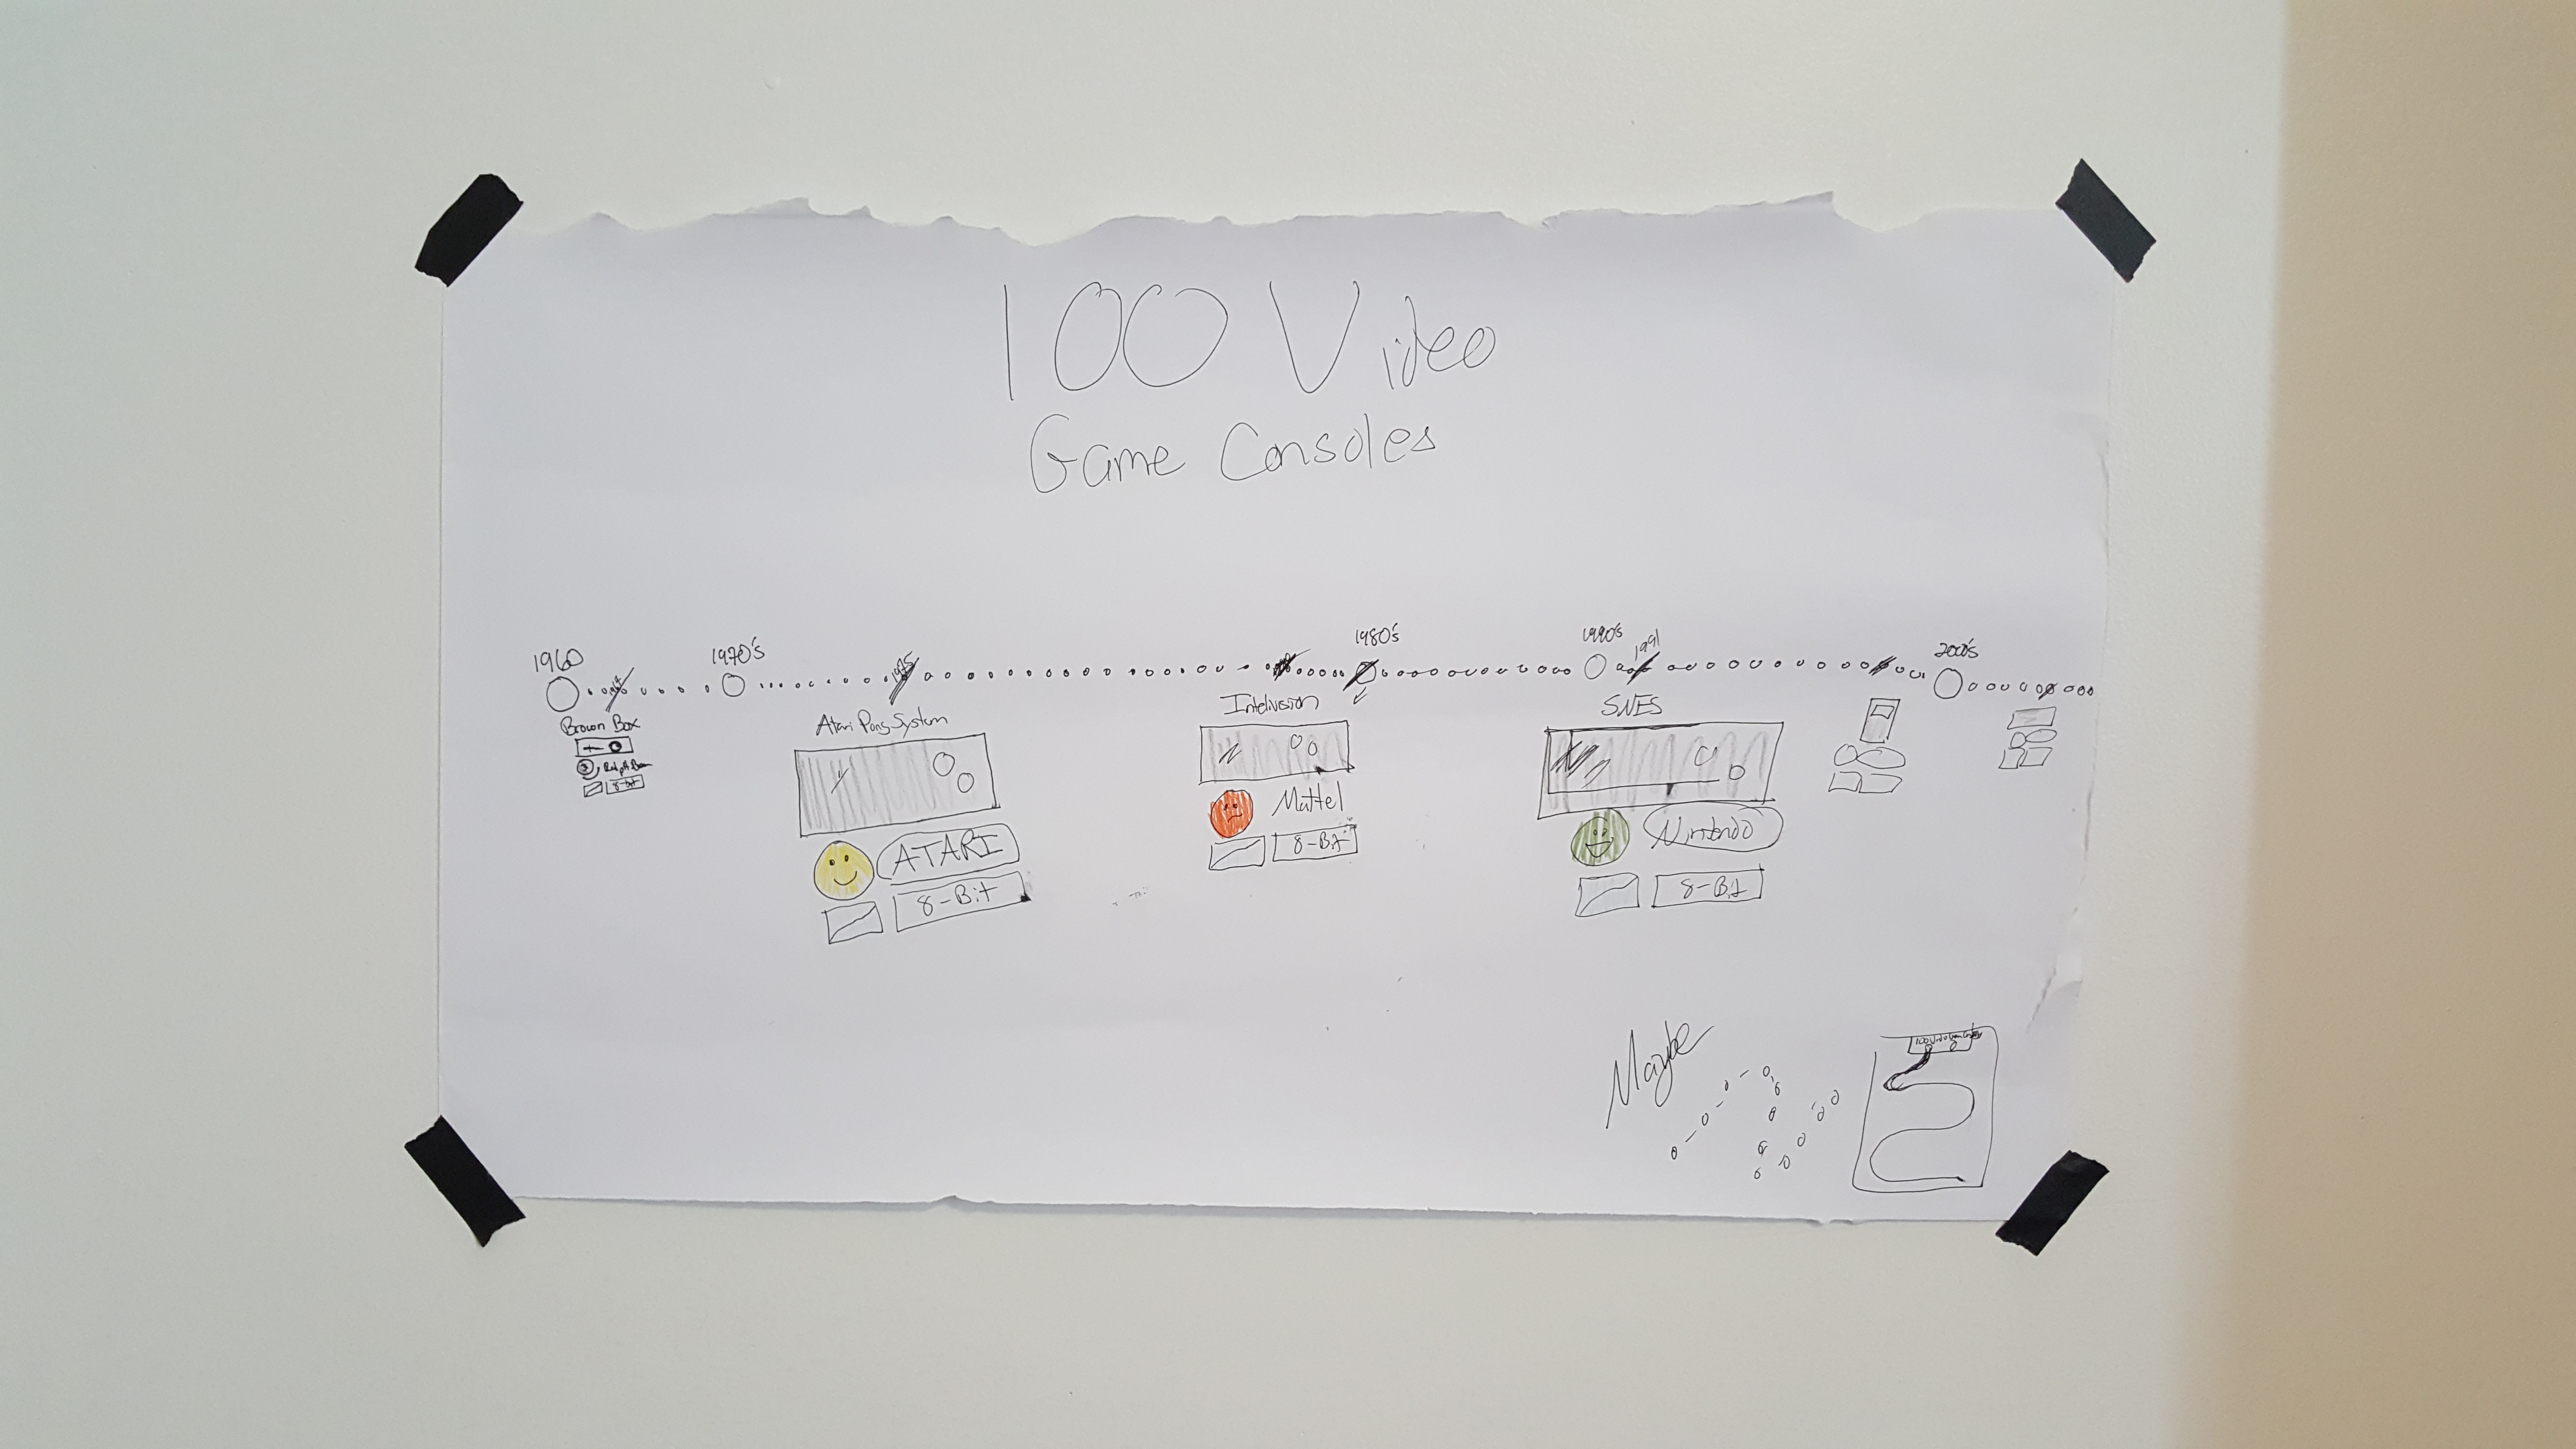 100 Video
Game Consoles
1960
1970's
1975
1980's
1990's
1991
2000's
Brown Box
8-Bit
Atari Pong System
ATARI
8-Bit
Intelivision
Mattel
8-Bit
SNES
Nintendo
8-Bit
Maybe